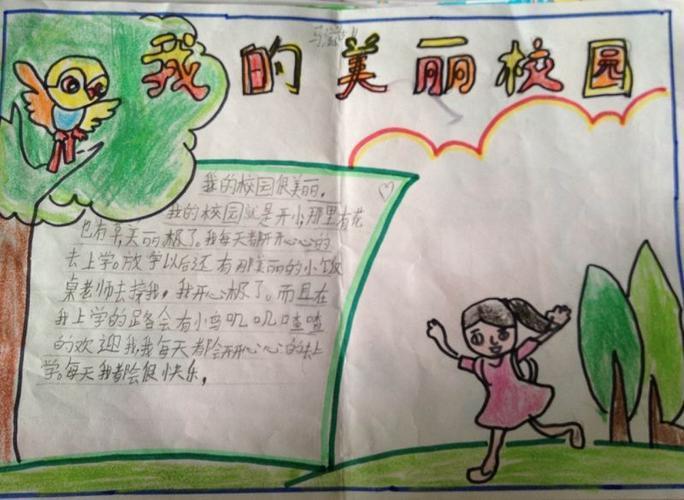 我的美丽校园
我的校园很美丽。
我的校园就是开小,那里有花
也有草,美丽极了。我每天都开开心心的
去上学。放学以后还有那美丽的小饭
桌老师去接我,我开心极了。而且在
我上学的路会有小鸟叽叽喳喳
的欢迎我,我每天都会开开心心的去上
学。每天我都会很快乐。